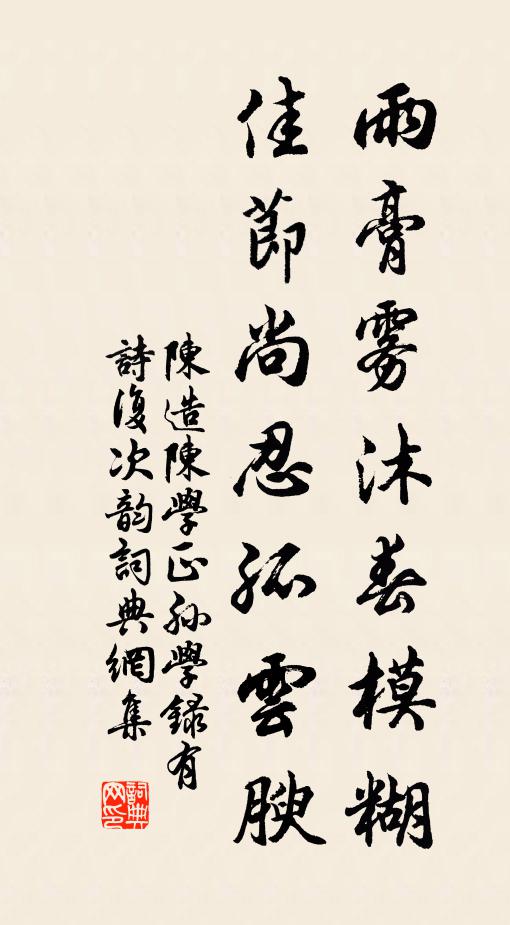 雨膏雾沐春模糊
佳節尚忍孤雲腴
陳造陳學正孙學録有
詩復次韵詞典網集
詞典网印